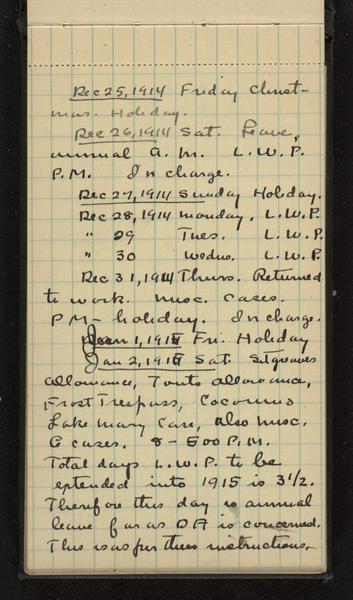 Dec 25, 1914 Friday Christ-
mas. Holiday.
Dec 26, 1914 Sat. Leave,
annual A.M. L.W.P.
P.M. In charge.
Dec 27, 1914 Sunday Holiday.
Dec 28, 1914 Monday, L.W.P.
" 29 Tues. L.W.P.
" 30 Wednes. L.W.P.
Dec 31, 1914 Thurs. Returned
to work. Misc. cases.
P.M - holiday. In charge.
Jan 1, 1915 Fri. Holiday
Jan 2, 1915 Sat. Sitgreaves
allowance, Tonto allowance,
Frost Trespass, Coconino
Lake Mary Case, also misc.
G cases. 8 - 5:00 P.M.
Total days L.W.P. to be
extended into 1915 is 3 1/2.
Therefore this day is annual
leave far as DA is concerned.
This is as per these instructions.